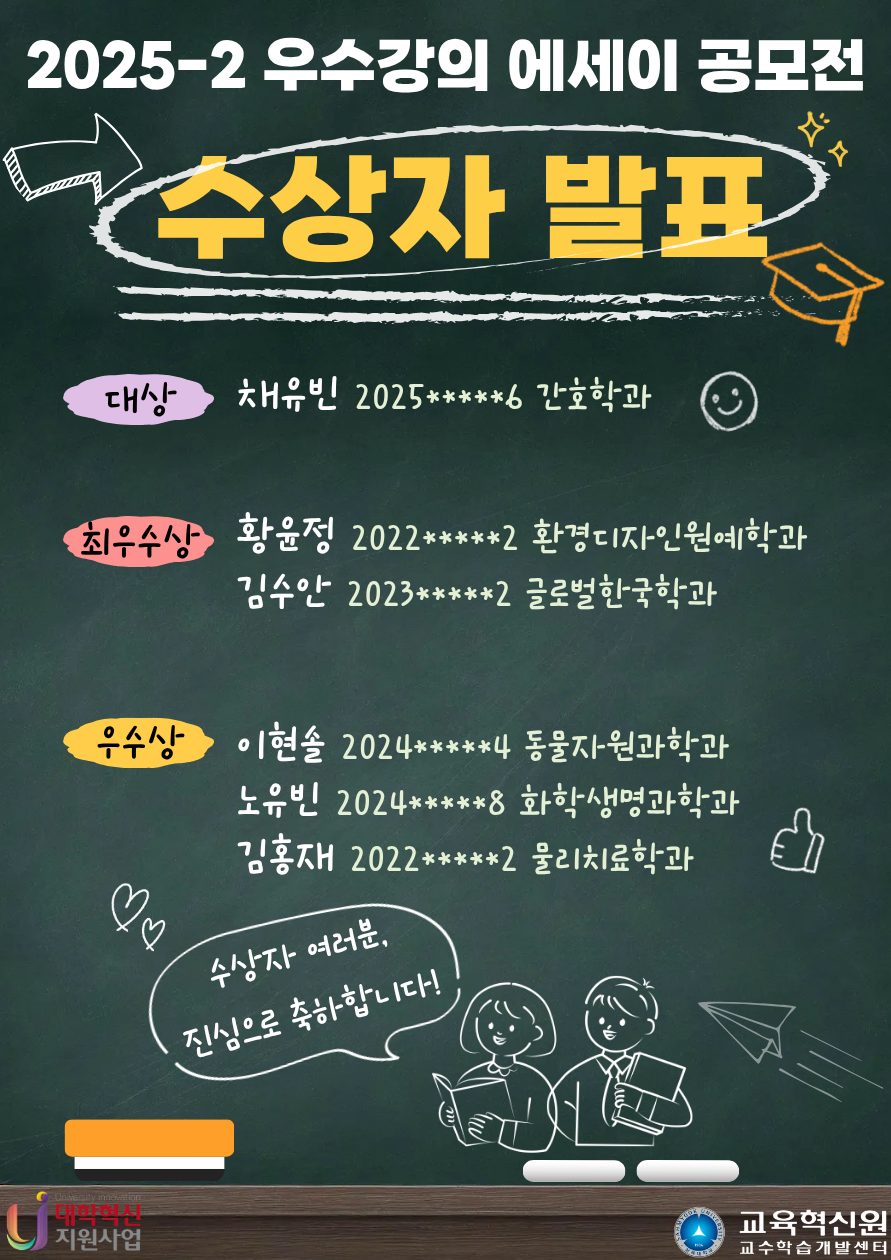 2025-2 우수강의 에세이 공모전
수상자 발표
대상
채유빈 2025*****6 간호학과
최우수상
황윤정 2022*****2 환경디자인원예학과
김수안 2023*****2 글로벌한국학과
우수상
이현솔 2024*****4 동물자원과학과
노유빈 2024*****8 화학생명과학과
김홍재 2022*****2 물리치료학과
수상자 여러분,
진심으로 축하합니다!
University innovation
대학혁신
지원사업
교육혁신원
교수학습개발센터